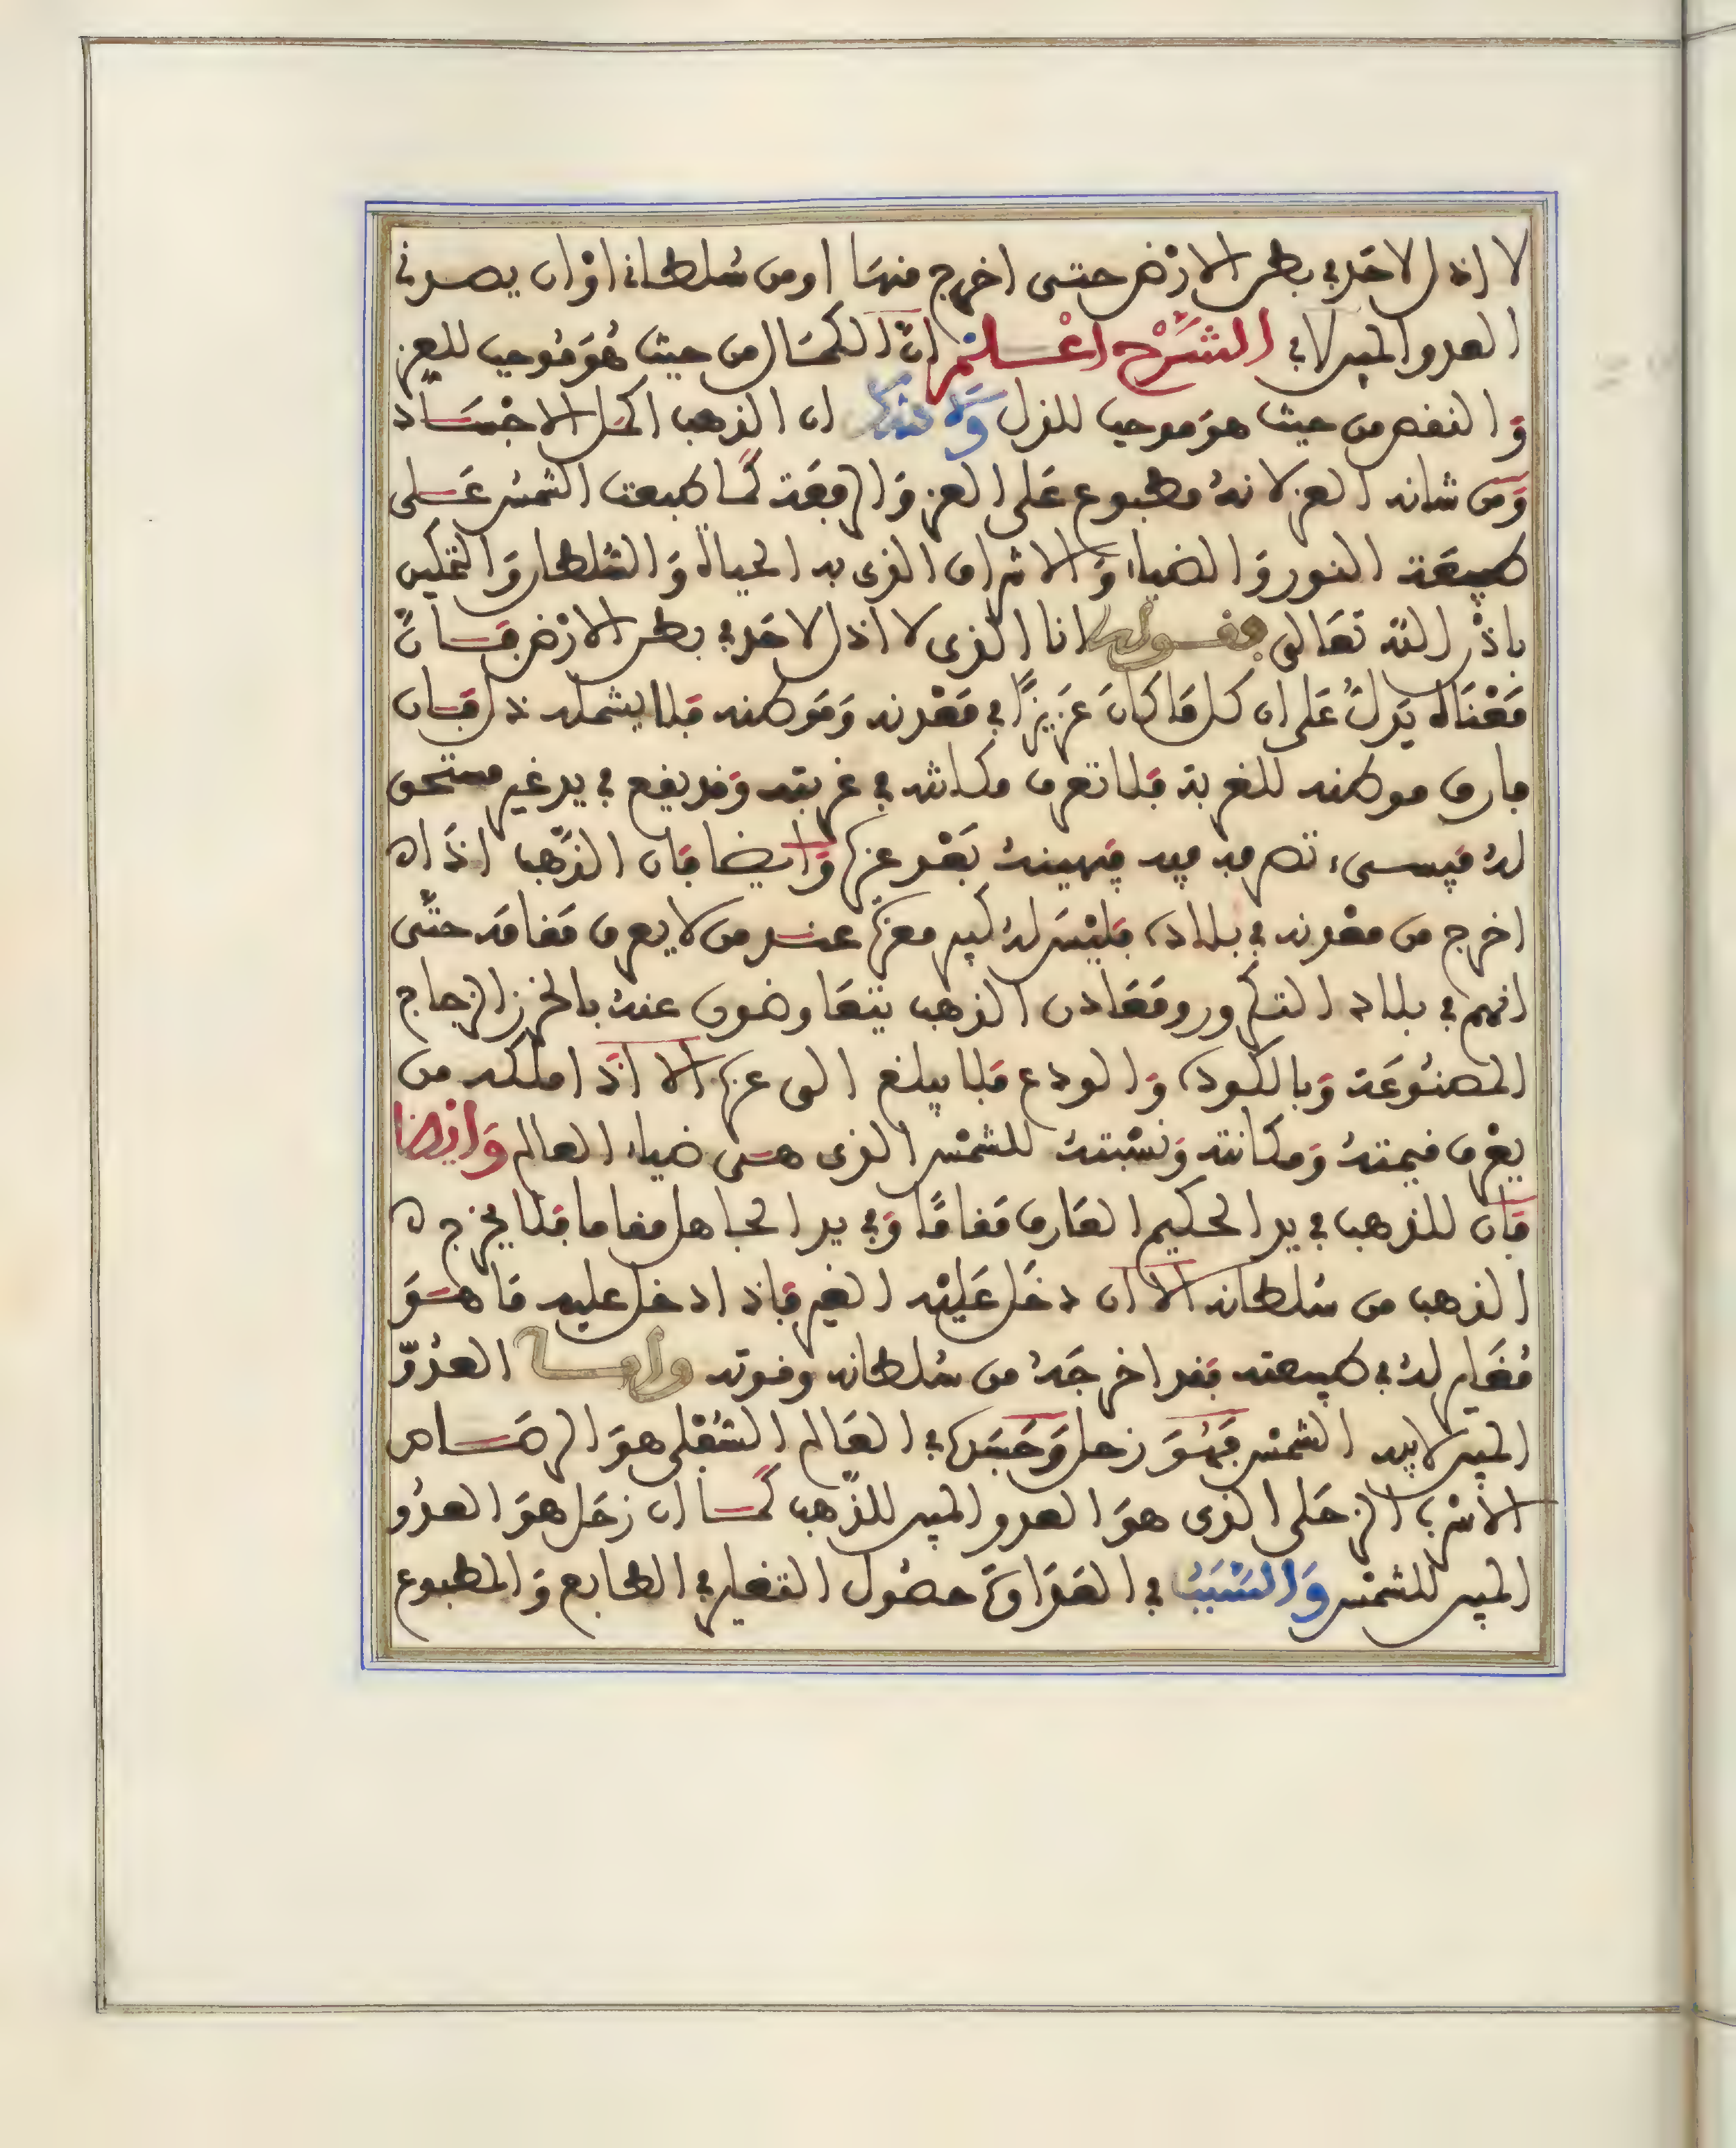 لا اذل لاحد في بطن الارض حتى اخرج منها او من سلطاني او ان يصدني
العدو المبين لابي الشَّرْح اعْـلـمْ انّ الكمَال من حيث هُوَ مُوجب للعز
وَالنقص من حيث هوَ موجب للذل وَلا شك ان الذهب اكمَل الاجْسَاد
وَمن شانه العز لانهُ مطبوع عَلى العز وَالرفعَة كَما طبعت الشمس عَلى
طبيعَة النور وَالضياء وَالاشراق الذي به الحياة وَالسُلطان وَالتمكين
باذْن الله تعَالى فقوله انا الذي لا اذل لاحَد في بطن الارْض فَانّ
مَعْنَاه يَدلُّ عَلى ان كل مَا كانَ عَزيزًا في مَعْدنه وَمَوطنه فَلا يشمله ذل فَان
فارق موطنه للغربة فَلا تعرف مكانته في غربته وَقد يقع في يد غير مستحق
لهُ فيسىء تصرفه فيه فيهينهُ بَعْد عزه وَايضا فَان الذّهب اذَا
اخرج من معْدنه في بلاده فليْسَ لهُ كبير معزة عند من لا يعرف مَقامَه حتَّى
انهم في بلاد التكرور ومَعَادن الذهب يتعَاوضون عنهُ بالخرز الزجاج
المصنُوعَة وَبالكودة وَالودع فَلا يبلغ الى عزه الا اذَا املكه من
يعْرف قيمتهُ وَمكانته وَنسْبتهُ للشمْس الذي هىَ ضياء العالم وَايْضا
فَان للذهب في يد الحكيم العَارف مَقامًا وَفي يد الجاهل مقاما فَلا يخرج
الذهب من سُلطانه الا ان دخَل عَليْه الغير فَاذا دخل عليه مَا هوَ
مُغَاير لهُ في طبيعته فَقد اخرجَهُ من سُلطانه وقوته وامـا العدُوّ
المبين لابيه الشمْس فَهُوَ زحل وَجَسَده في العَالم السُفلى هوَ الرصَـاص
الاسْرب الزحَلى الذي هوَ العدو المبين للذّهب كَما ان زحَل هوَ العدُو
المبين للشمْس وَالسَّبَبُ في العَدَاوة حصُول التغاير في الطابع وَالمطبوع